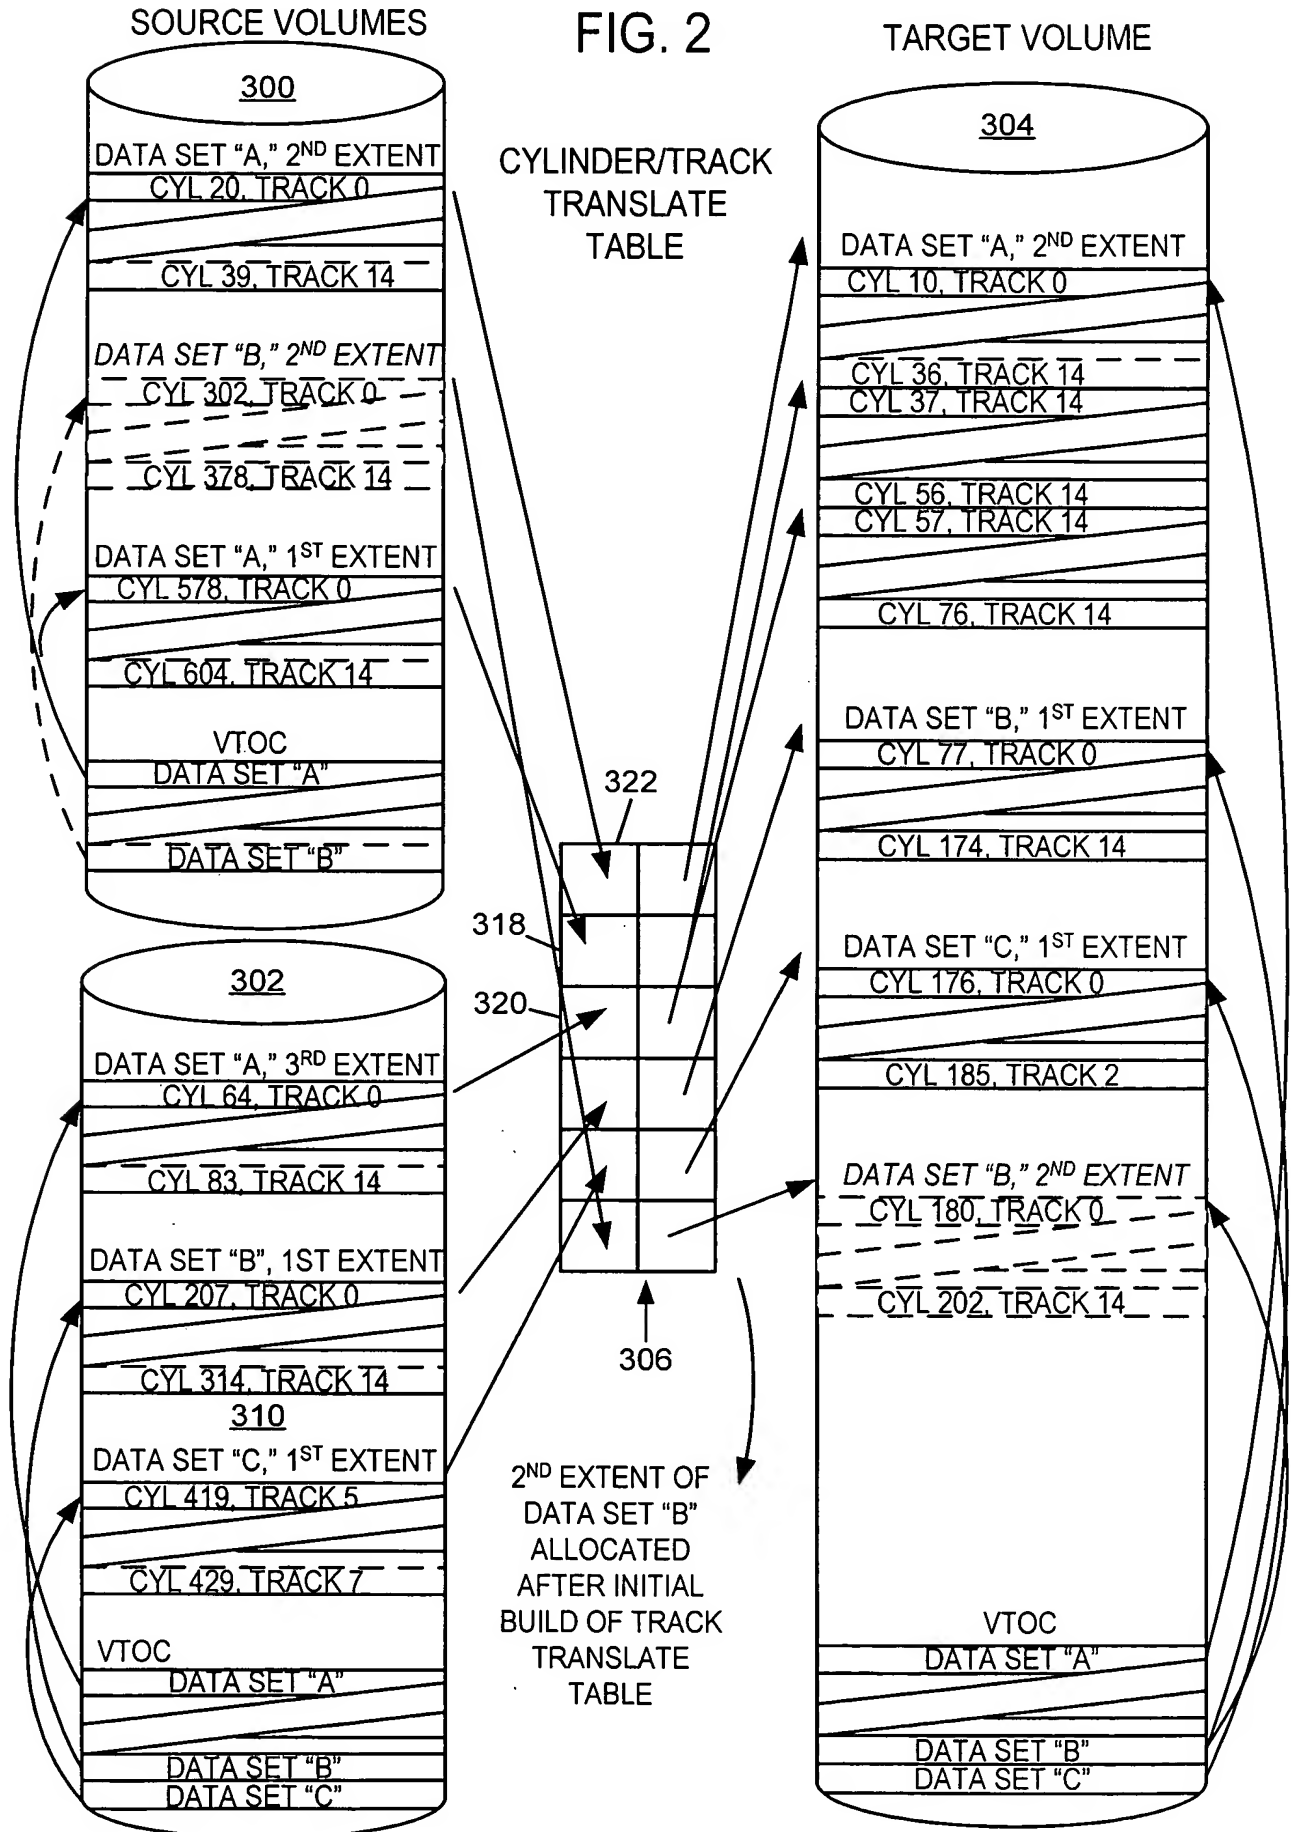 SOURCE VOLUMES
FIG. 2
TARGET VOLUME
300
DATA SET "A," 2ND EXTENT
CYL 20, TRACK 0
CYL 39, TRACK 14
DATA SET "B," 2ND EXTENT
CYL 302, TRACK 0
CYL 378, TRACK 14
DATA SET "A," 1ST EXTENT
CYL 578, TRACK 0
CYL 604, TRACK 14
VTOC
DATA SET "A"
DATA SET "B"
302
DATA SET "A," 3RD EXTENT
CYL 64, TRACK 0
CYL 83, TRACK 14
DATA SET "B", 1ST EXTENT
CYL 207, TRACK 0
CYL 314, TRACK 14
310
DATA SET "C," 1ST EXTENT
CYL 419, TRACK 5
CYL 429, TRACK 7
VTOC
DATA SET "A"
DATA SET "B"
DATA SET "C"
CYLINDER/TRACK
TRANSLATE
TABLE
322
318
320
306
2ND EXTENT OF
DATA SET "B"
ALLOCATED
AFTER INITIAL
BUILD OF TRACK
TRANSLATE
TABLE
304
DATA SET "A," 2ND EXTENT
CYL 10, TRACK 0
CYL 36, TRACK 14
CYL 37, TRACK 14
CYL 56, TRACK 14
CYL 57, TRACK 14
CYL 76, TRACK 14
DATA SET "B," 1ST EXTENT
CYL 77, TRACK 0
CYL 174, TRACK 14
DATA SET "C," 1ST EXTENT
CYL 176, TRACK 0
CYL 185, TRACK 2
DATA SET "B," 2ND EXTENT
CYL 180, TRACK 0
CYL 202, TRACK 14
VTOC
DATA SET "A"
DATA SET "B"
DATA SET "C"